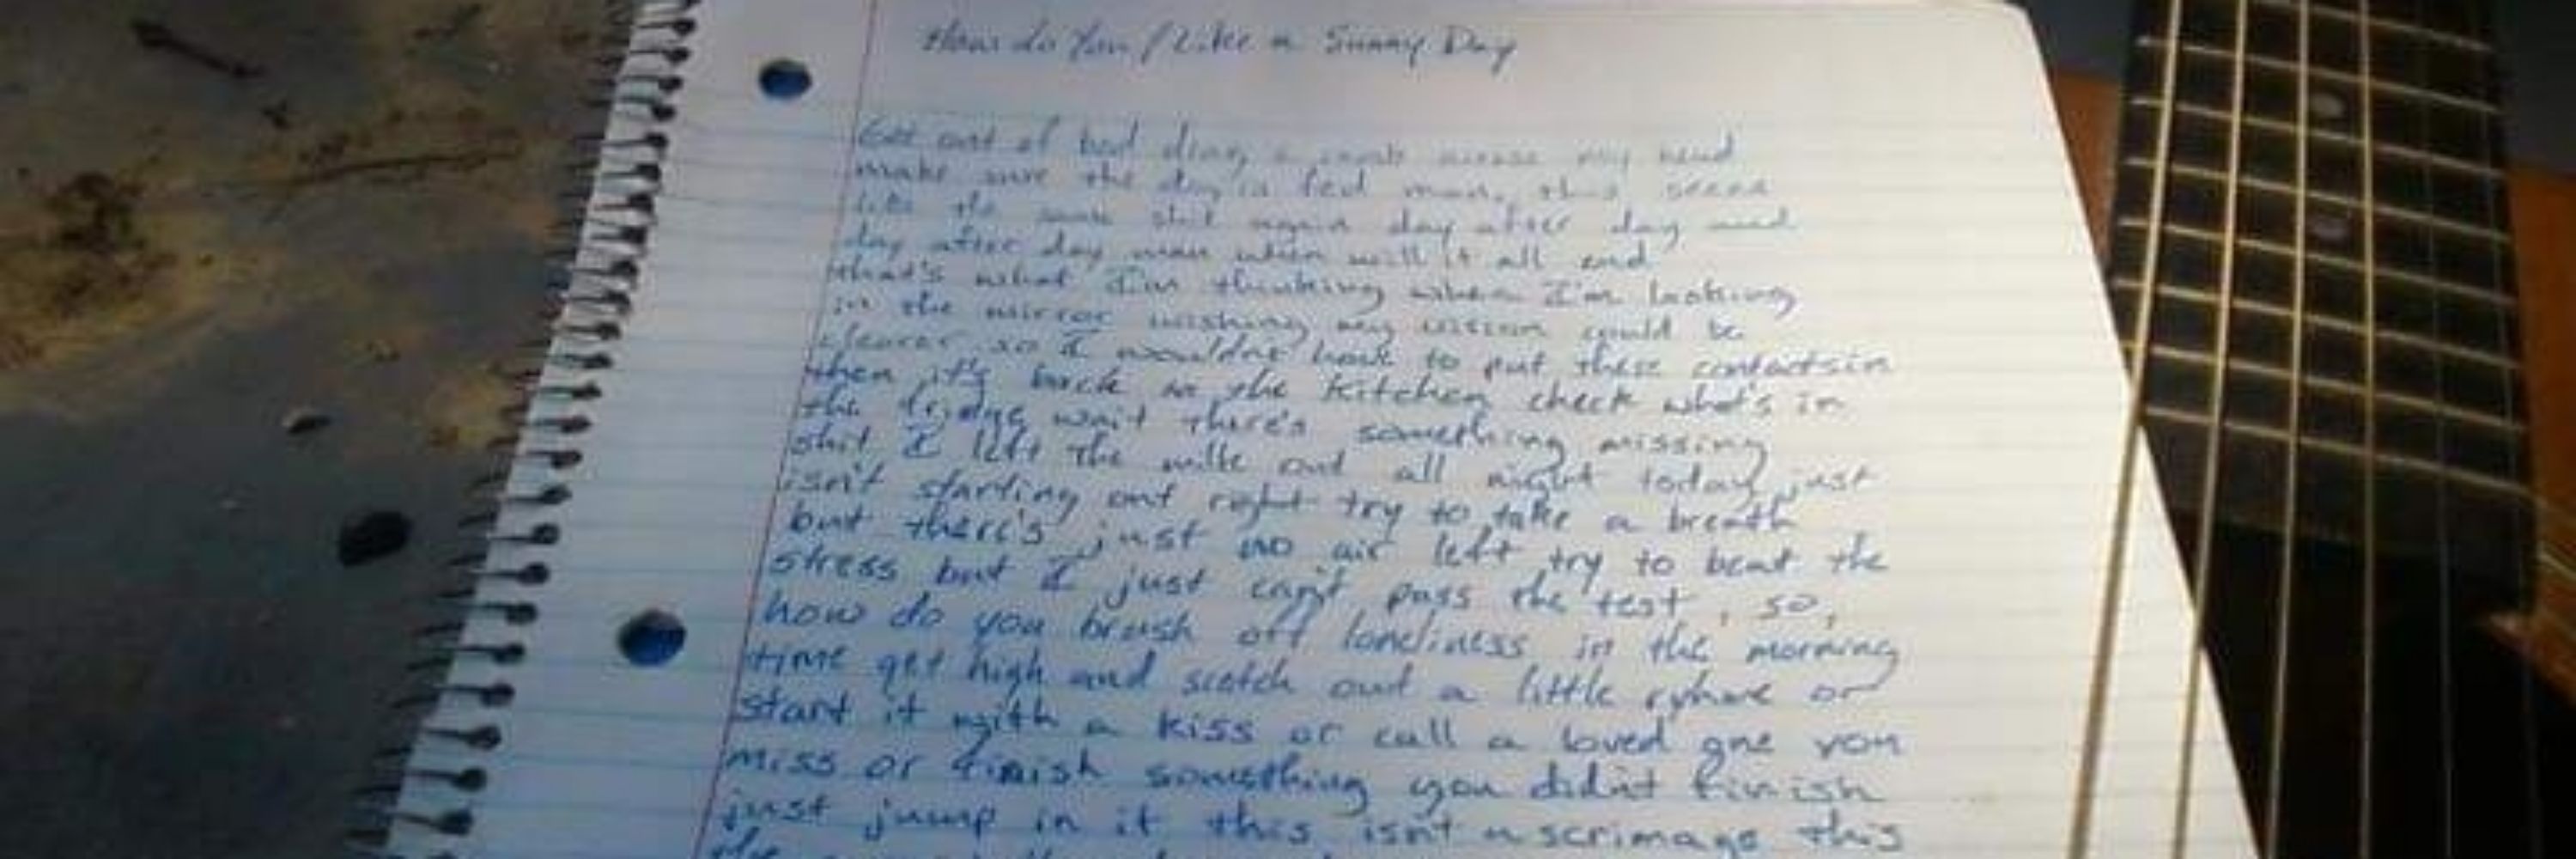 How do You / Like a Sunny Day
Get out of bed drag a comb across my head
make sure the dog is fed man, this seems
like the same shit again day after day and
day after day man when will it all end
that's what I'm thinking when I'm looking
in the mirror wishing my vision could be
clearer so I wouldnt have to put these contacts in
then it's back in the kitchen check who's in
the fridge wait there's something missing
shit I left the milk out all night today just
isn't starting out right try to take a breath
but there's just no air left try to beat the
stress but I just can't pass the test, so,
how do you brush off loneliness in the morning
time get high and scetch out a little ryhme or
start it with a kiss or call a loved one you
miss or finish something you didn't finish
just jump in it this isn't a scrimage this
the